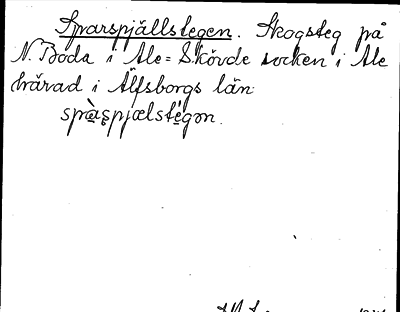 Sparspjällstegen. Skogsteg på
N. Boda i Ale-Skövde socken i Ale
härad i Älfsborgs län.
spàs̨pjælstégən.